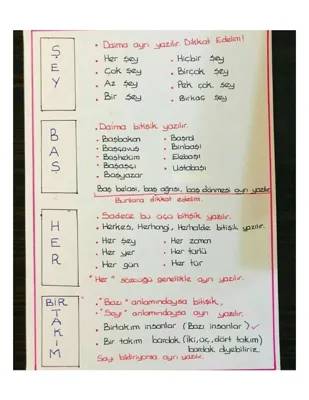 ŞEY
• Daima ayrı yazılır. Dikkat Edelim!
• Her şey • Hiçbir şey
• Çok şey • Birçok şey
• Az şey • Pek çok şey
• Bir şey • Birkaç şey
BAŞ
• Daima bitişik yazılır.
• Başbakan • Başrol
• Başçavuş • Binbaşı
• Başhekim • Elebaşı
• Başaçı • Ustabaşı
• Başyazar
Baş belası, baş ağrısı, baş dönmesi ayrı yazılır
Bunlara dikkat edelim.
HER
• Sadece bu üçü bitişik yazılır.
• Herkes, Herhangi, Herhalde bitişik yazılır.
• Her şey • Her zaman
• Her yer • Her türlü
• Her gün • Her tür
"Her" sözcüğü genellikle ayrı yazılır.
BİRTAKIM
• "Bazı" anlamındaysa bitişik,
• "Sayı" anlamındaysa ayrı yazılır.
• Birtakım insanlar (Bazı insanlar) ✓
• Bir takım bardak (İki, üç, dört takım)
bardak diyebiliriz.
Sayı bildiriyorsa ayrı yazılır.